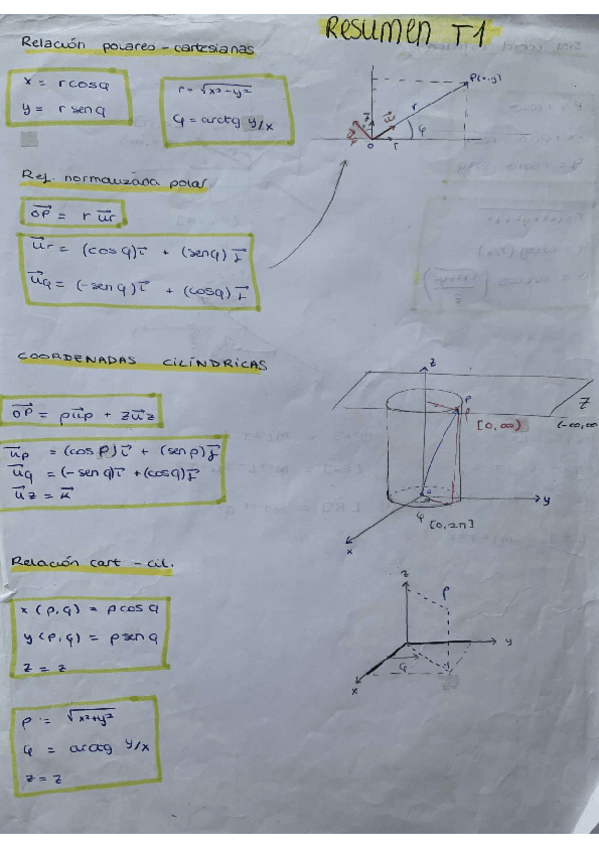 Resumen T1
Relación polares-cartesianas
x = r cos φ
y = r sen φ
r = √x²-y²
φ = arctg y/x
P(x,y)
r
φ
O
Ref. normalizada polar
OP = r ur
ur = (cos φ) i + (sen φ) j
uφ = (-sen φ) i + (cos φ) j
COORDENADAS CILÍNDRICAS
OP = ρuρ + zuz
uρ = (cos ρ) i + (sen ρ) j
uφ = (-sen φ) i + (cos φ) j
uz = k
z
P
[0,∞)
Z
(-∞,∞
y
φ [0,2π]
x
Relación cart-cil.
x (ρ,φ) = ρ cos φ
y (ρ,φ) = ρ sen φ
z = z
z
ρ
y
φ
x
ρ = √x²+y²
φ = arctg y/x
z = z